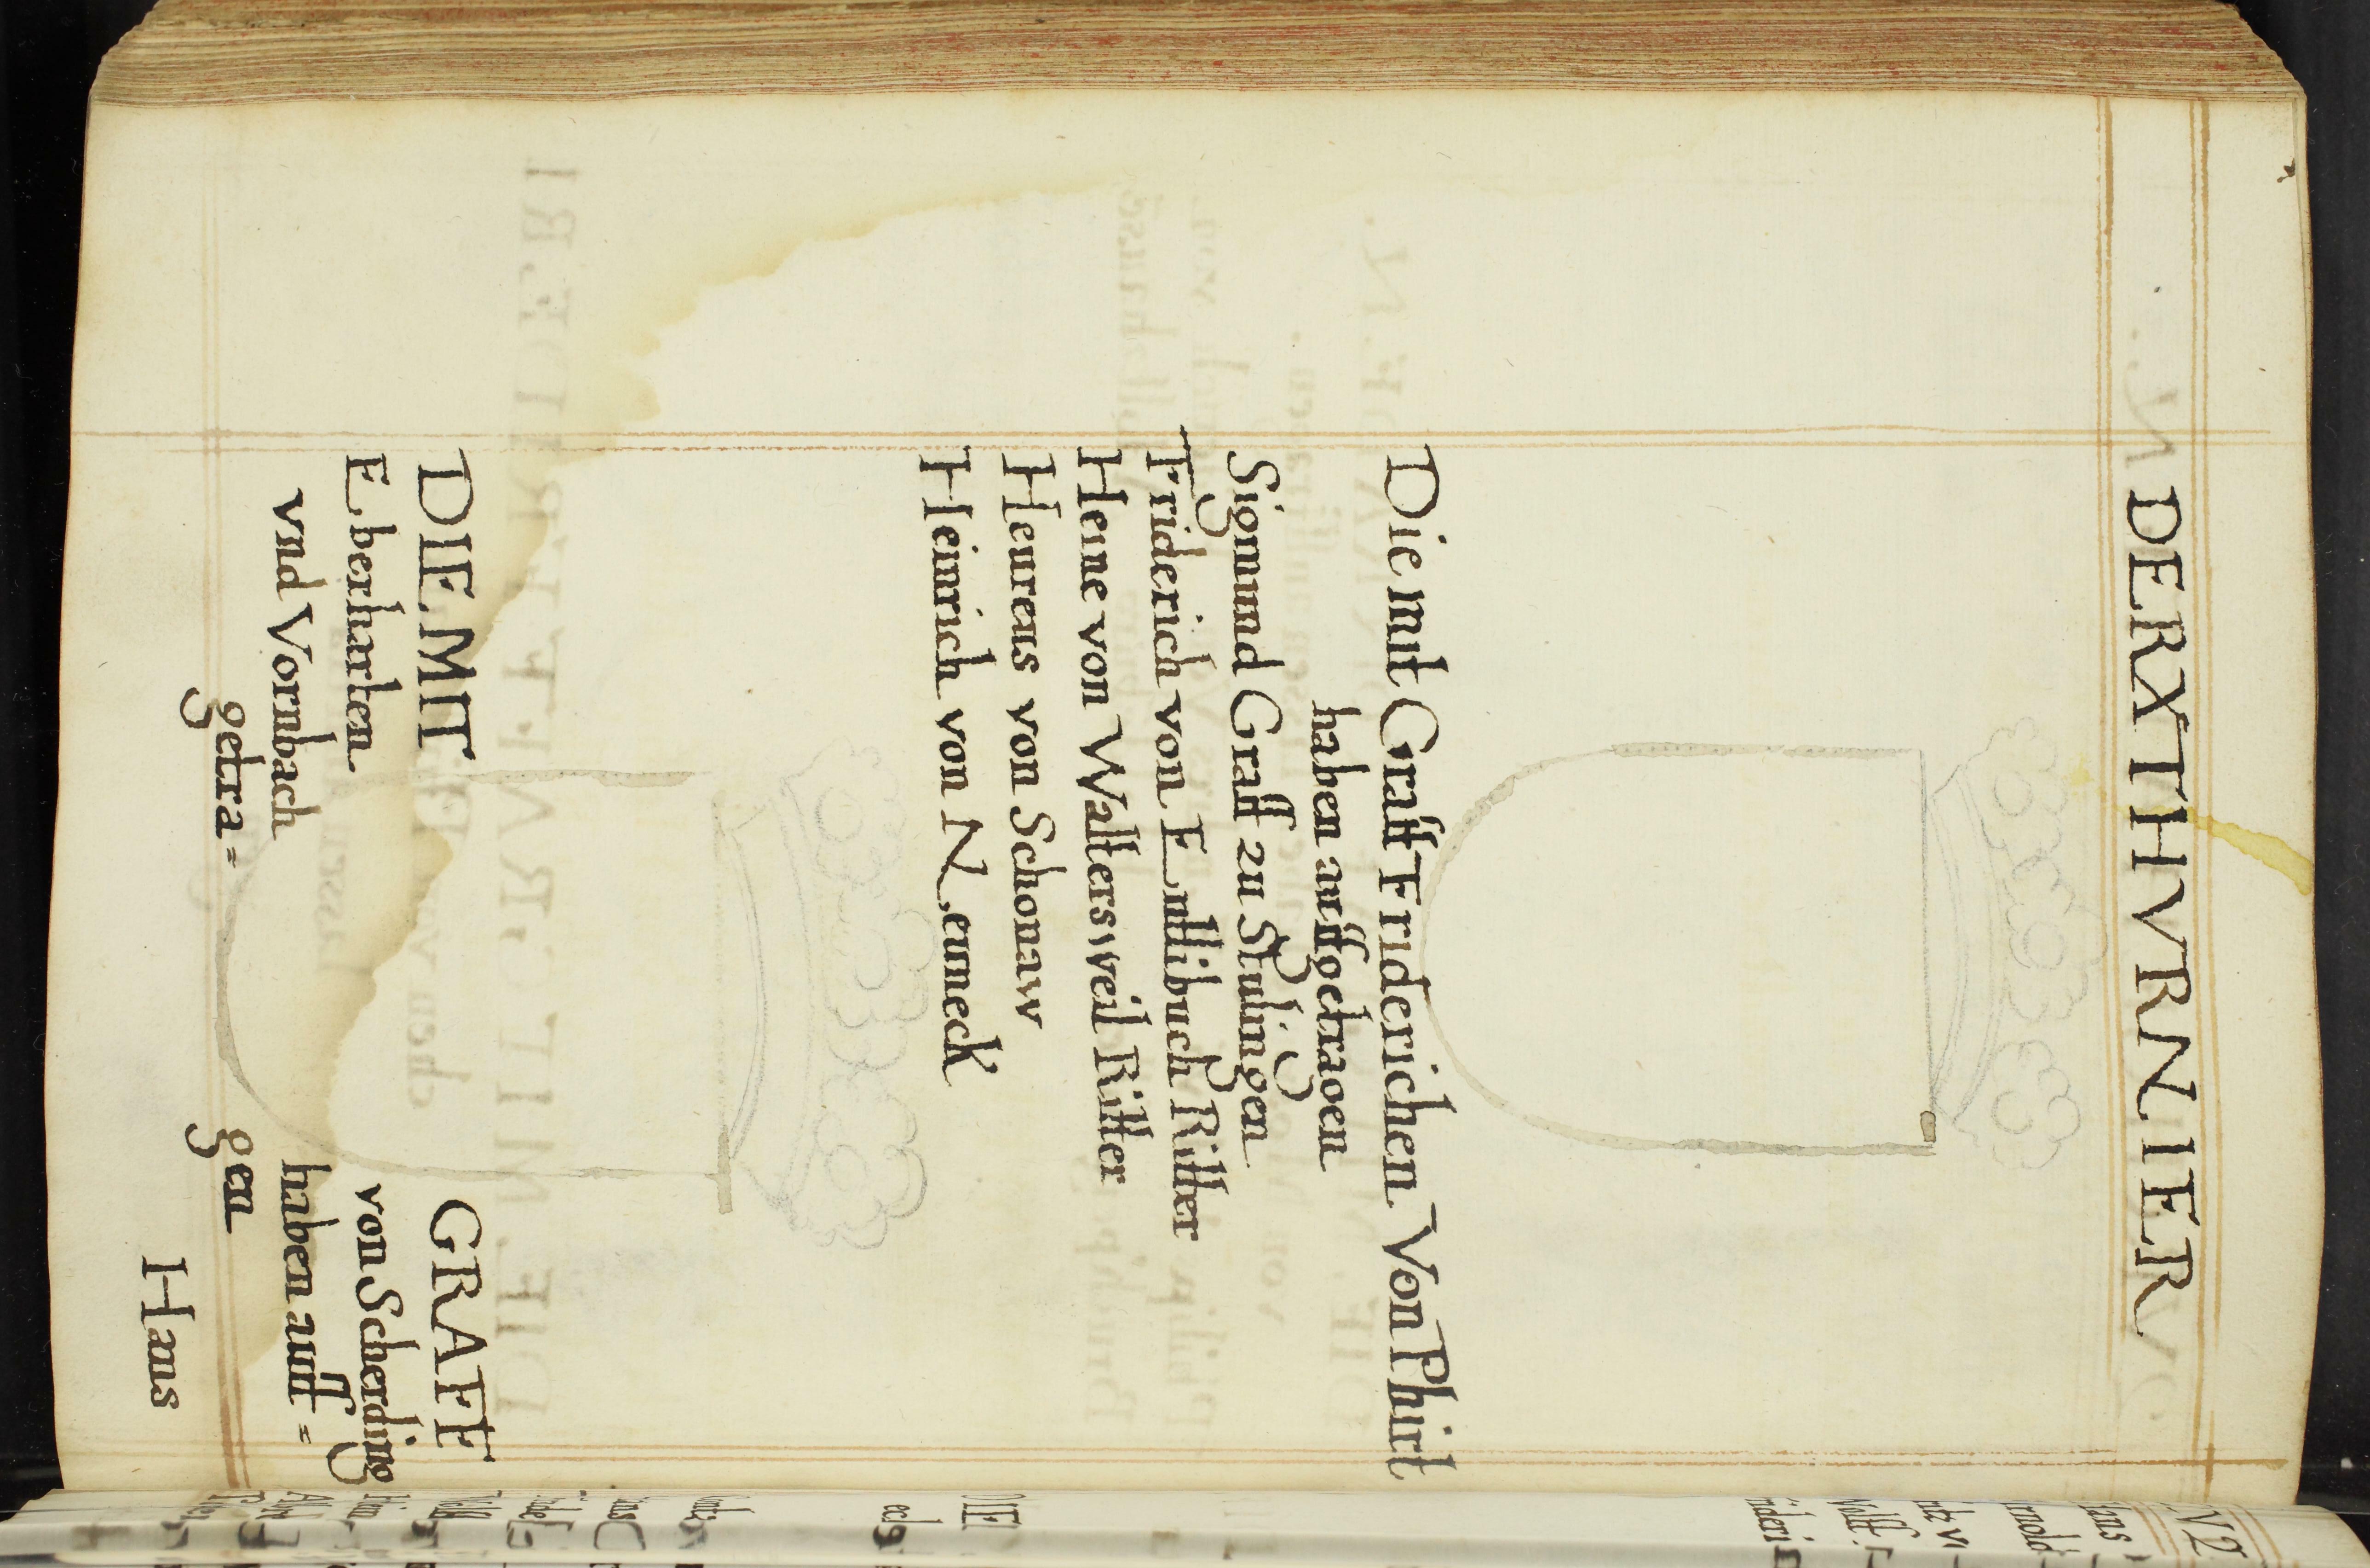 DER XTHVRNIER
Die mit Graff Friderichen Von Phirt
haben auffgetragen
Sigmund Graff zu Stulingen
Friderich von Entlibuch Ritter
Heine von Waltersweil Ritter
Heureus von Schonaw
Heinrich von Neuneck
DIE MIT GRAFF
Eberharten von Scherding
vnd Vornbach haben auff=
getra= gen
Hans